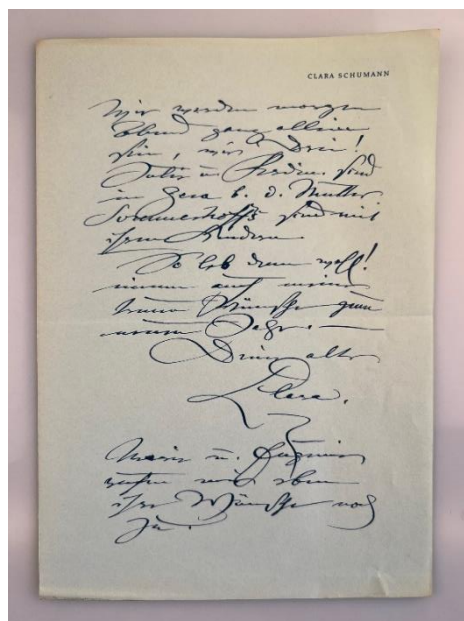 CLARA SCHUMANN
Wir werden morgen
Abend ganz allein
sein, wir Drei!
sind
in Gera b. d. Mutter
Sommerhoffs sind mit
ihren Kindern.
So leb denn wohl!
nimm auch meine
Wünsche zum
neuen Jahre. —
Deine alte
Clara.
Marie u. Eugenie
rufen mir eben
ihre Wünsche noch
zu.